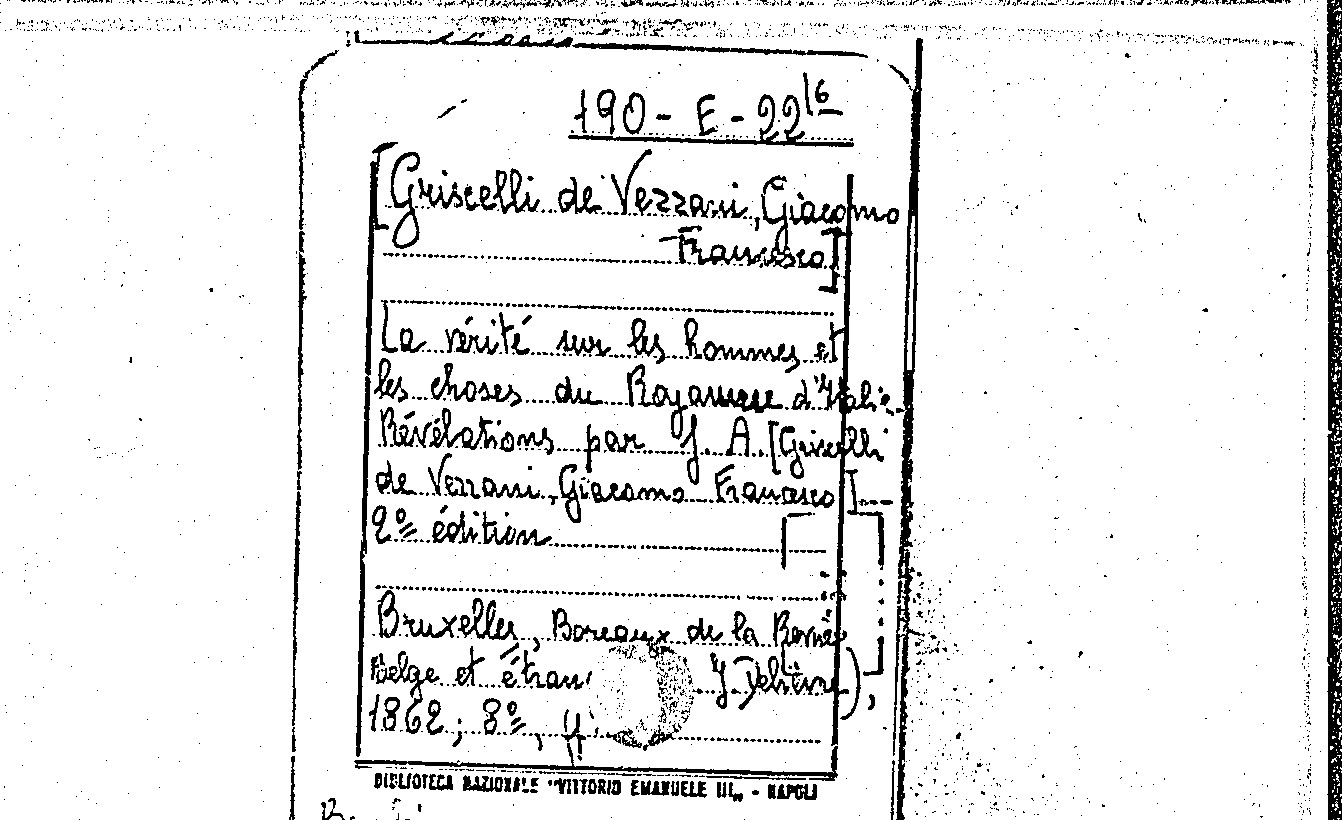 190 - E - 22 16
[Griscelli de Vezzani, Giacomo
Francesco]
La vérité sur les hommes et
les choses du Royaume d'Italie.
Révélations par J. A. [Griscelli
de Vezzani, Giacomo Francesco]
2º édition
Bruxelles, Bureaux de la Revue
Belge et étran J. Delièvre),
1862; 8º,
BIBLIOTECA NAZIONALE "VITTORIO EMANUELE III„ - NAPOLI